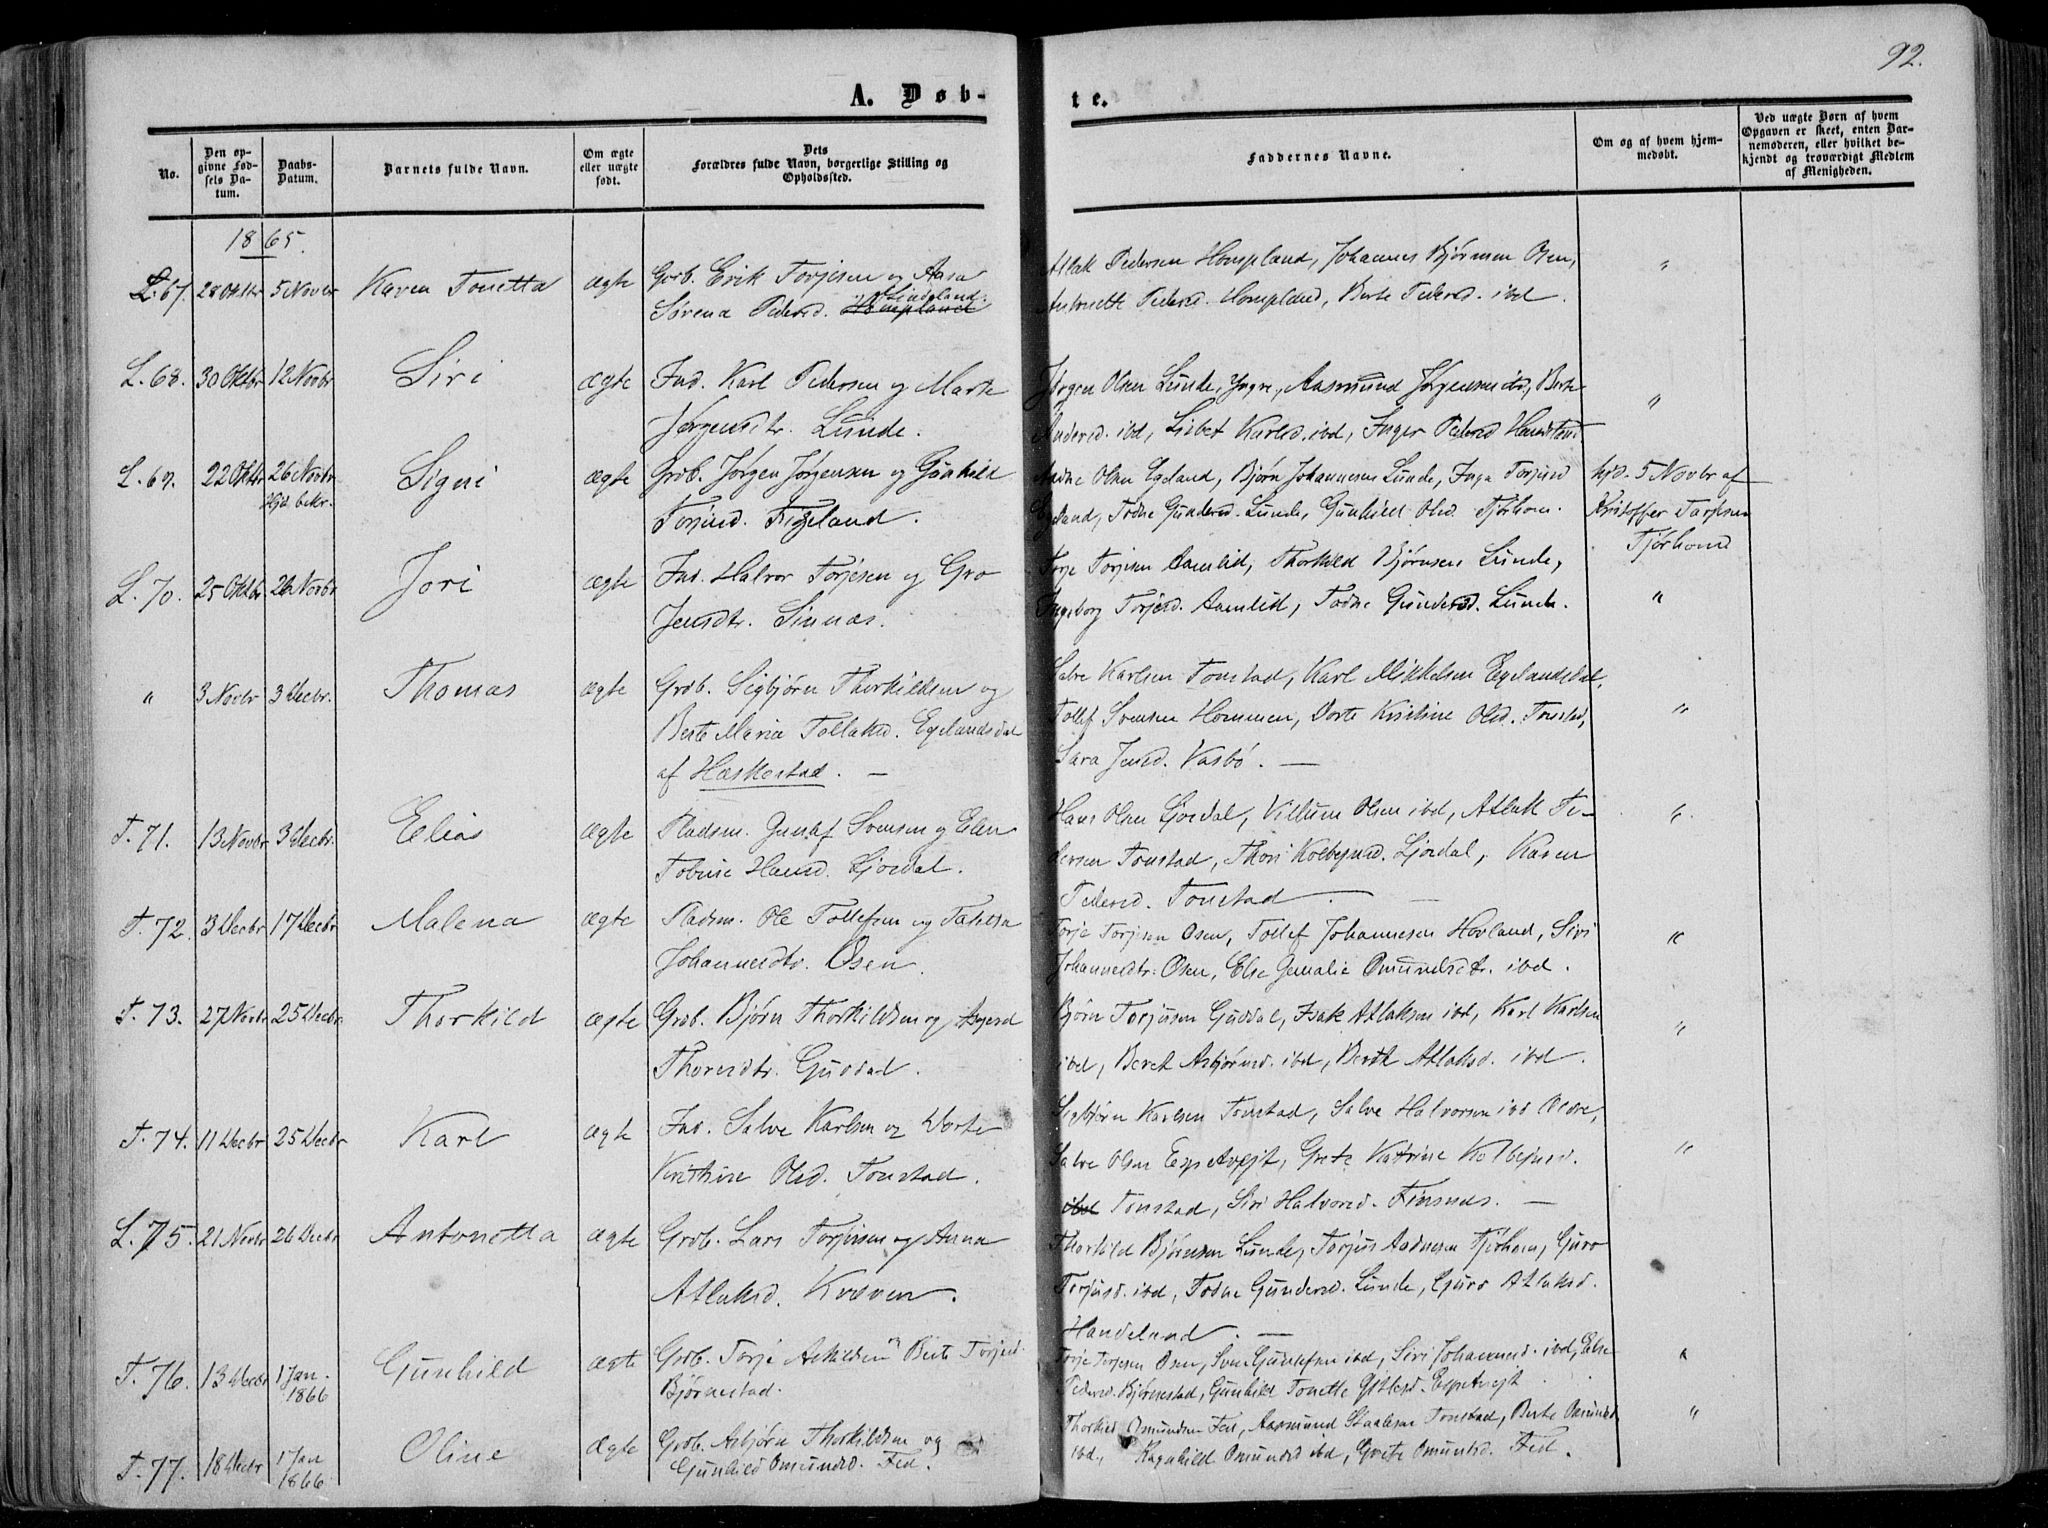 92.
A. Døb-
te.
No.
Den op-
givne Fød-
sels Da-
tum.
Daabs-
Datum.
Barnets fulde Navn.
Om ægte
eller uægte
født.
Dets
Forældres fulde Navn, borgerlige Stilling og
Opholdssted.
Faddernes Navne.
Om og af hvem hjem-
medøbt.
Ved uægte Børn af hvem
Opgaven er skeet, enten Bar-
nemoderen, eller hvilket be-
kjendt og troværdigt Medlem
af Menigheden.
1865.
L. 67. 28 Oktbr 5 Novbr Karen Tonetta ægte Grdb. Erik Torjesen og Aasa
Sørena Pedersd. Lindeland. Hompland
Atlak Pedersen Hompland, Johannes Bjørnsen Osen,
Antonette Pedersd. Hompland, Berte Pedersd. ibd. "
L. 68. 30 Oktbr 12 Novbr Siri ægte Ind. Karl Pedersen og Marte
Jørgensdtr. Lunde.
Jørgen Olsen Lunde, Yngre, Aasmund Jørgensen ibd, Berte
Andersd. ibd, Lisbet Karlsd. ibd, Inger Pedersd "
L. 69. 22 Oktbr 26 Novbr Hjd. bekr. Signi ægte Grdb. Jørgen Jørgensen og Gunhild
Torjusd. Figgeland.
Aadne Olsen Egeland, Bjørn Johannesen Lunde, Inga Torjusd
Egeland, Todne Gundersd. Lunde, Gunhild Olsd. Tjørhom.
hjd. 5 Novbr af
Kristoffer Tarjesen
Tjørhom
L. 70. 25 Oktbr 26 Novbr Jori ægte Ind. Halvor Torjesen og Gro
Jensdtr. Sinnæs.
Torje Torjesen Aamlid, Thorkild Bjørnsen Lunde,
Ingeborg Torjesd. Aamlid, Todne Gundersd. Lunde. "
" 3 Novbr 3 Decbr. Thomas ægte Grdb. Sigbjørn Thorkildsen og
Berte Maria Tollaksd. Egelandsdal
af Heskestad. —
Salve Karlsen Tonstad, Karl Mikkelsen Egelandsdal,
Tollef Svensen Hommen, Dorte Kristine Olsd. Tonstad,
Sara Jensd. Vasbø. — "
T. 71. 13 Novbr 3 Decbr. Elias ægte Pladsm. Gunlef Svensen og Elen
Tobine Hansd. Ljosdal.
Hans Olsen Ljosdal, Villum Olsen ibd, Atlak Pe-
dersen Tonstad, Thori Kolbejnsd. Ljosdal, Karen
Pedersd. Tonstad. — "
T. 72. 3 Decbr 17 Decbr Malena ægte Pladsm. Ole Tollefsen og Tabitha
Johannesdtr. Osen.
Torje Torjesen Osen, Tollef Johannesen Hovland, Siri
Johannesdtr. Osen, Else Omundsdtr. ibd. "
T. 73. 27 Novbr 25 Decbr. Thorkild ægte Grdb. Bjørn Thorkildsen og Asgjerd
Thoresdtr. Guddal.
Bjørn Torjusen Guddal, Isak Atlaksen ibd, Karl Karlsen
ibd, Beret Asbjørnsd. ibd, Berth Atlaksd. ibd. "
T. 74. 11 Decbr 25 Decbr Karl ægte Ind. Salve Karlsen og Dorte
Kristine Olsd. Tonstad.
Sigbjørn Karlsen Tonstad, Salve Halvorsen ibd Ældre,
Salve Olsen Espetvejt, Grete Katrine Kolbejnsd.
ibd Tonstad, Siri Halvorsd. Finsnes. — "
L. 75. 21 Novbr 26 Decbr Antonetta ægte Grdb. Lars Torjusen og Anna
Atlaksd. Kvæven.
Thorkild Bjørnsen Lunde, Torjus Aadnesen Tjørhom, Guro
Torjusd. ibd, Todne Gundersd. Lunde, Guro Atlaksd.
Handeland. —
T. 76. 13 Decbr 1 Jan. 1866 Gunhild ægte Grdb. Torje Askildsen og Berte Torjesd.
Bjørnestad.
Torje Torjesen Osen, Sven Gunlefsen ibd, Siri Johannesd. ibd, Else
Pedersd. Bjørnestad, Gunhild Tonette Espetvejt. "
T. 77. 18 Decbr 1 Jan 1866 Oline ægte Grdb. Asbjørn Thorkildsen og
Gunhild Omundsd. Fed.
Thorkild Omundsen Fed, Aasmund Staalesen Tonstad, Berte Omundsd
ibd, Ragnhild Omundsd ibd, Grete Omundsd. Fed. "